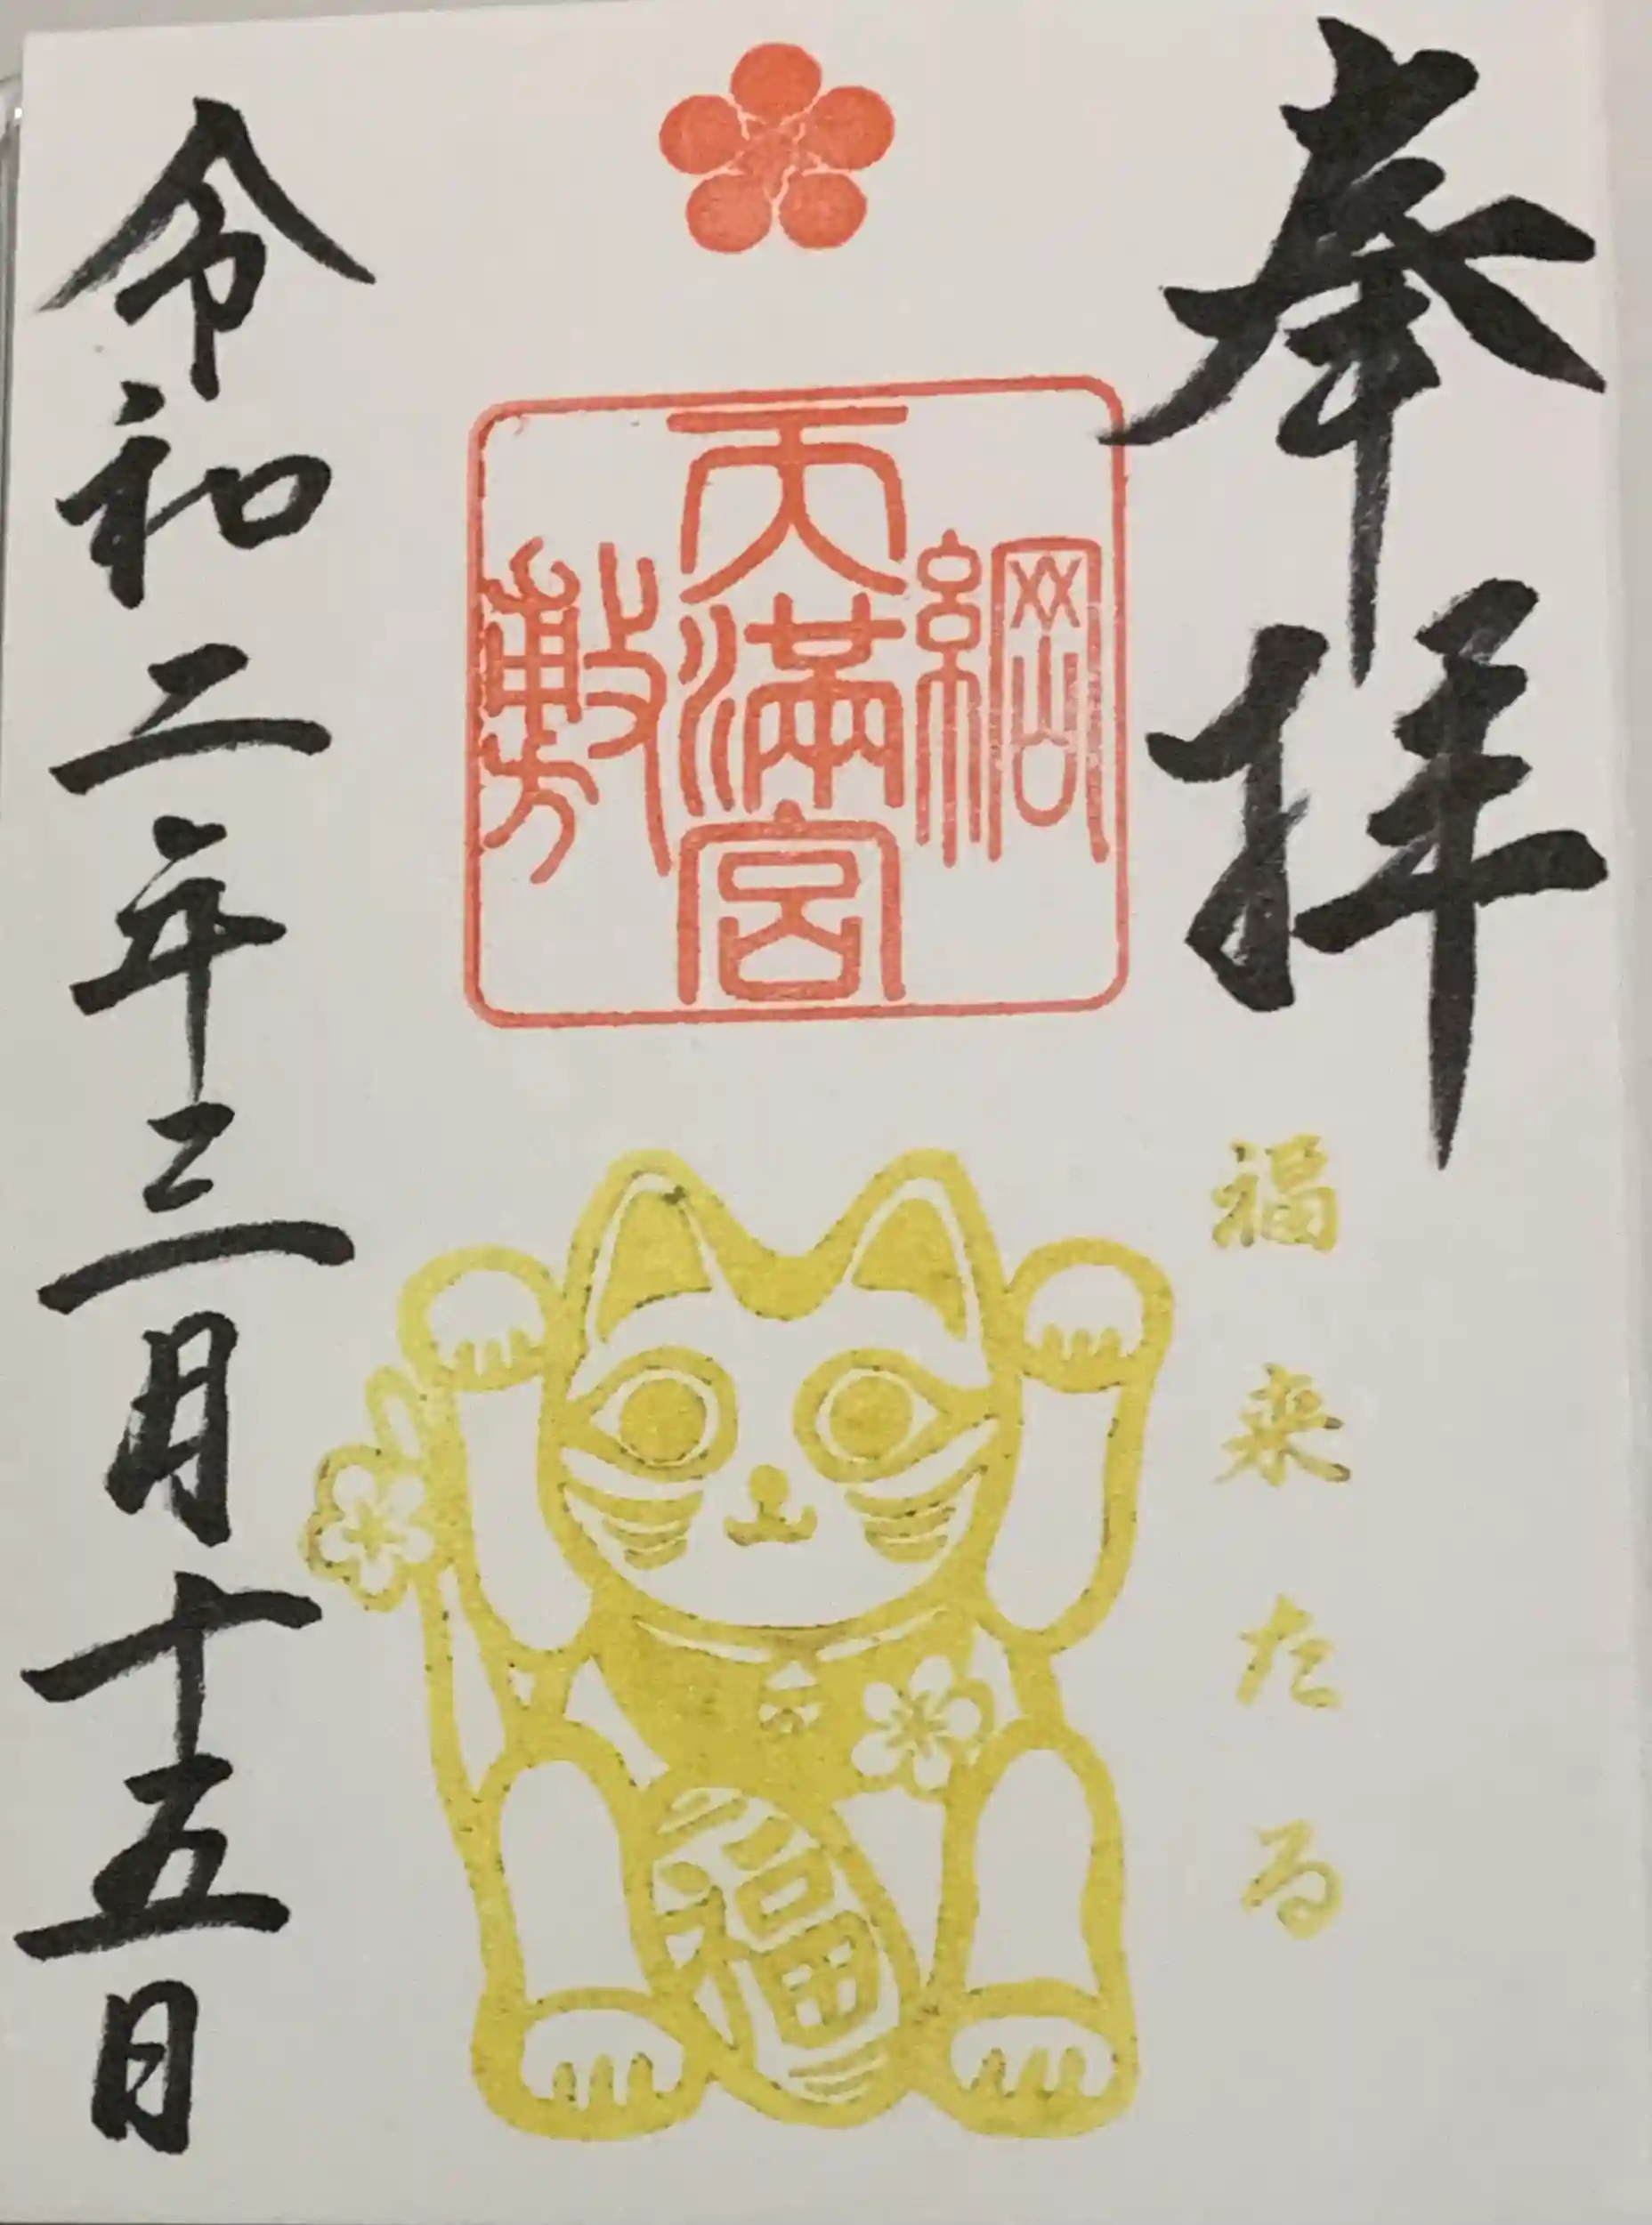 奉拝
福来たる
綱敷
天満宮
福
令和二年三月十五日